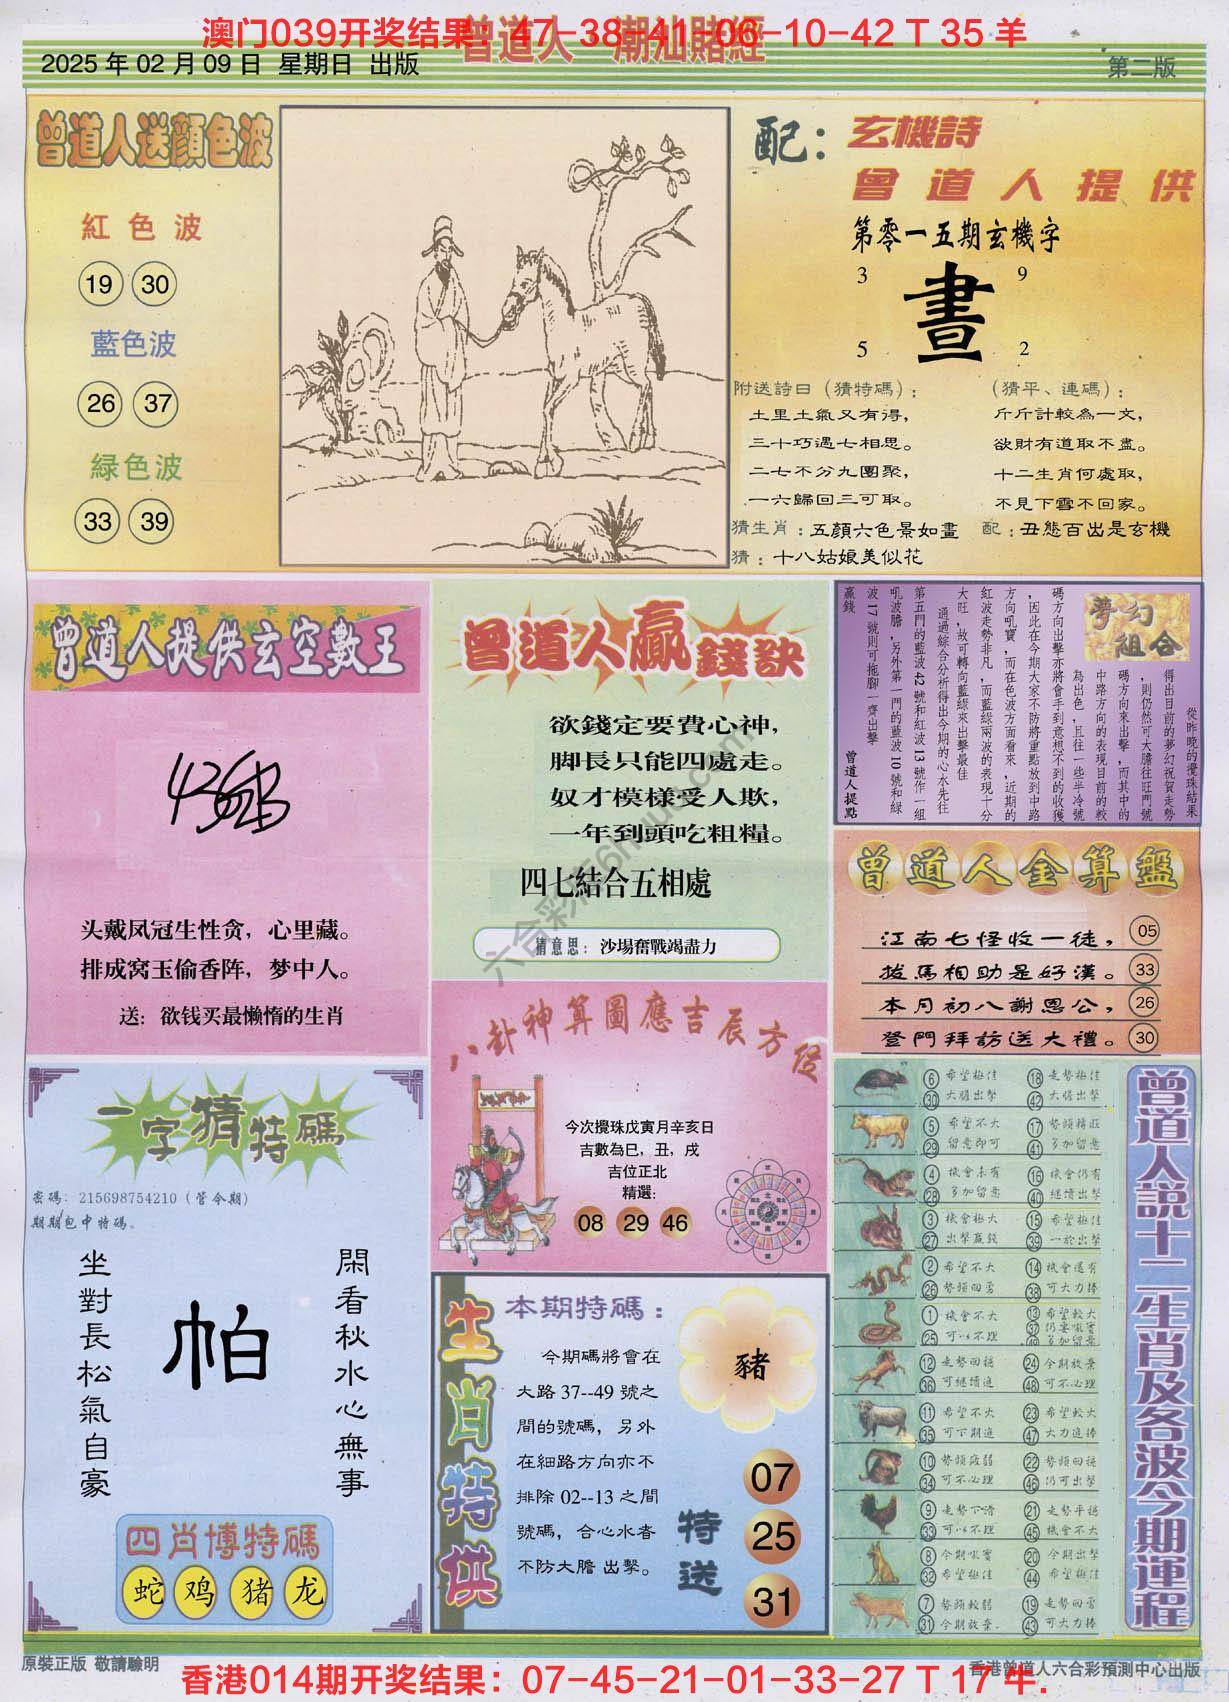 澳门039开奖结果：47-38-41-06-10-42 T 35 羊
曾道人 潮汕賭經
2025 年 02 月 09 日 星期日 出版
第二版
曾道人送顏色波
紅色波
19 30
藍色波
26 37
緑色波
33 39
配：玄機詩
曾道人提供
第零一五期玄機字
3 9
晝
5 2
附送詩日（猜特碼）：
土里土氣又有得，
三十巧遇七相思。
二七不分九團聚，
一六歸回三可取。
（猜平、連碼）：
斤斤計較為一文，
欲財有道取不盡。
十二生肖何處取，
不見下雪不回家。
猜生肖：五顏六色景如畫
配：丑態百出是玄機
猜：十八姑娘美似花
曾道人提供玄空數王
头戴凤冠生性贪，心里藏。
排成窝玉偷香阵，梦中人。
送：欲钱买最懒惰的生肖
曾道人贏錢訣
欲錢定要費心神，
脚長只能四處走。
奴才模樣受人欺，
一年到頭吃粗糧。
四七結合五相處
猜意思：沙場奮戰竭盡力
夢幻組合
從昨晚的攪珠結果
得出目前的夢幻祝賀走勢
，則仍然可大膽往旺門號
碼方向來出擊，而其中的
中路方向的表現目前的較
為出色，且往一些半冷號
碼方向出擊亦將會手到意想不到的收獲
，因此在今期大家不防將重點放到中路
方向吼寶，而在色波方面看來，近期的
紅波走勢非凡，而藍綠兩波的表現十分
大旺，故可轉向藍綠來出擊最佳
通過綜合分析得出今期的心水先往
第五門的藍波 42 號和紅波 13 號作一組
吼波膽，另外第一門的藍波 10 號和綠
波 17 號則可拖腳一齊出擊
贏錢
曾道人提點
曾道人金算盤
江南七怪收一徒， 05
拔馬相助是好漢。 33
本月初八謝恩公， 26
登門拜訪送大禮。 30
八卦神算圖應吉辰方位
今次攪珠戊寅月辛亥日
吉數為巳，丑，戌
吉位正北
精選：
08 29 46
一字猜特碼
密碼：215698754210（管今期）
期期包中特碼。
坐對長松氣自豪
帕
閑看秋水心無事
四肖博特碼
蛇 鸡 猪 龙
生肖特供
本期特碼：
豬
今期碼將會在
大路 37--49 號之
間的號碼，另外
在細路方向亦不
排除 02--13 之間
號碼，合心水者
不防大膽 出擊。
特送
07
25
31
曾道人説十二生肖及各波今期運程
6 希望極佳 18 走勢極佳
30 大膽出擊 42 大膽出擊
5 希望不大 17 勢頭精旺
29 留意即可 41 多加留意
4 機會未有 16 機會仍有
28 多加留意 40 繼續出擊
3 機會極大 15 希望極佳
27 出擊贏錢 39 一於出擊
2 希望不大 14 機會還有
26 勢頭回勇 38 可大力捧
1 機會不大 13 希望較大
25 可以不理
12 走勢回穩 24 今期放棄
36 可繼續追 48 可不必理
11 希望不大 23 希望較大
35 可下期追 47 大力追捧
10 勢頭疲弱 22 勢頭回穩
34 可不必理 46 仍可出擊
9 走勢下滑 21 走勢平穩
33 可以不理 45 機會不大
8 今期吼實 20 今期出擊
32 希望極佳 44 希望極佳
7 勢頭較弱 19 走勢回雪
31 今期放棄. 43 可大力捧
原裝正版 敬請驗明
香港曾道人六合彩預測中心出版
香港014期开奖结果：07-45-21-01-33-27 T 17 牛.